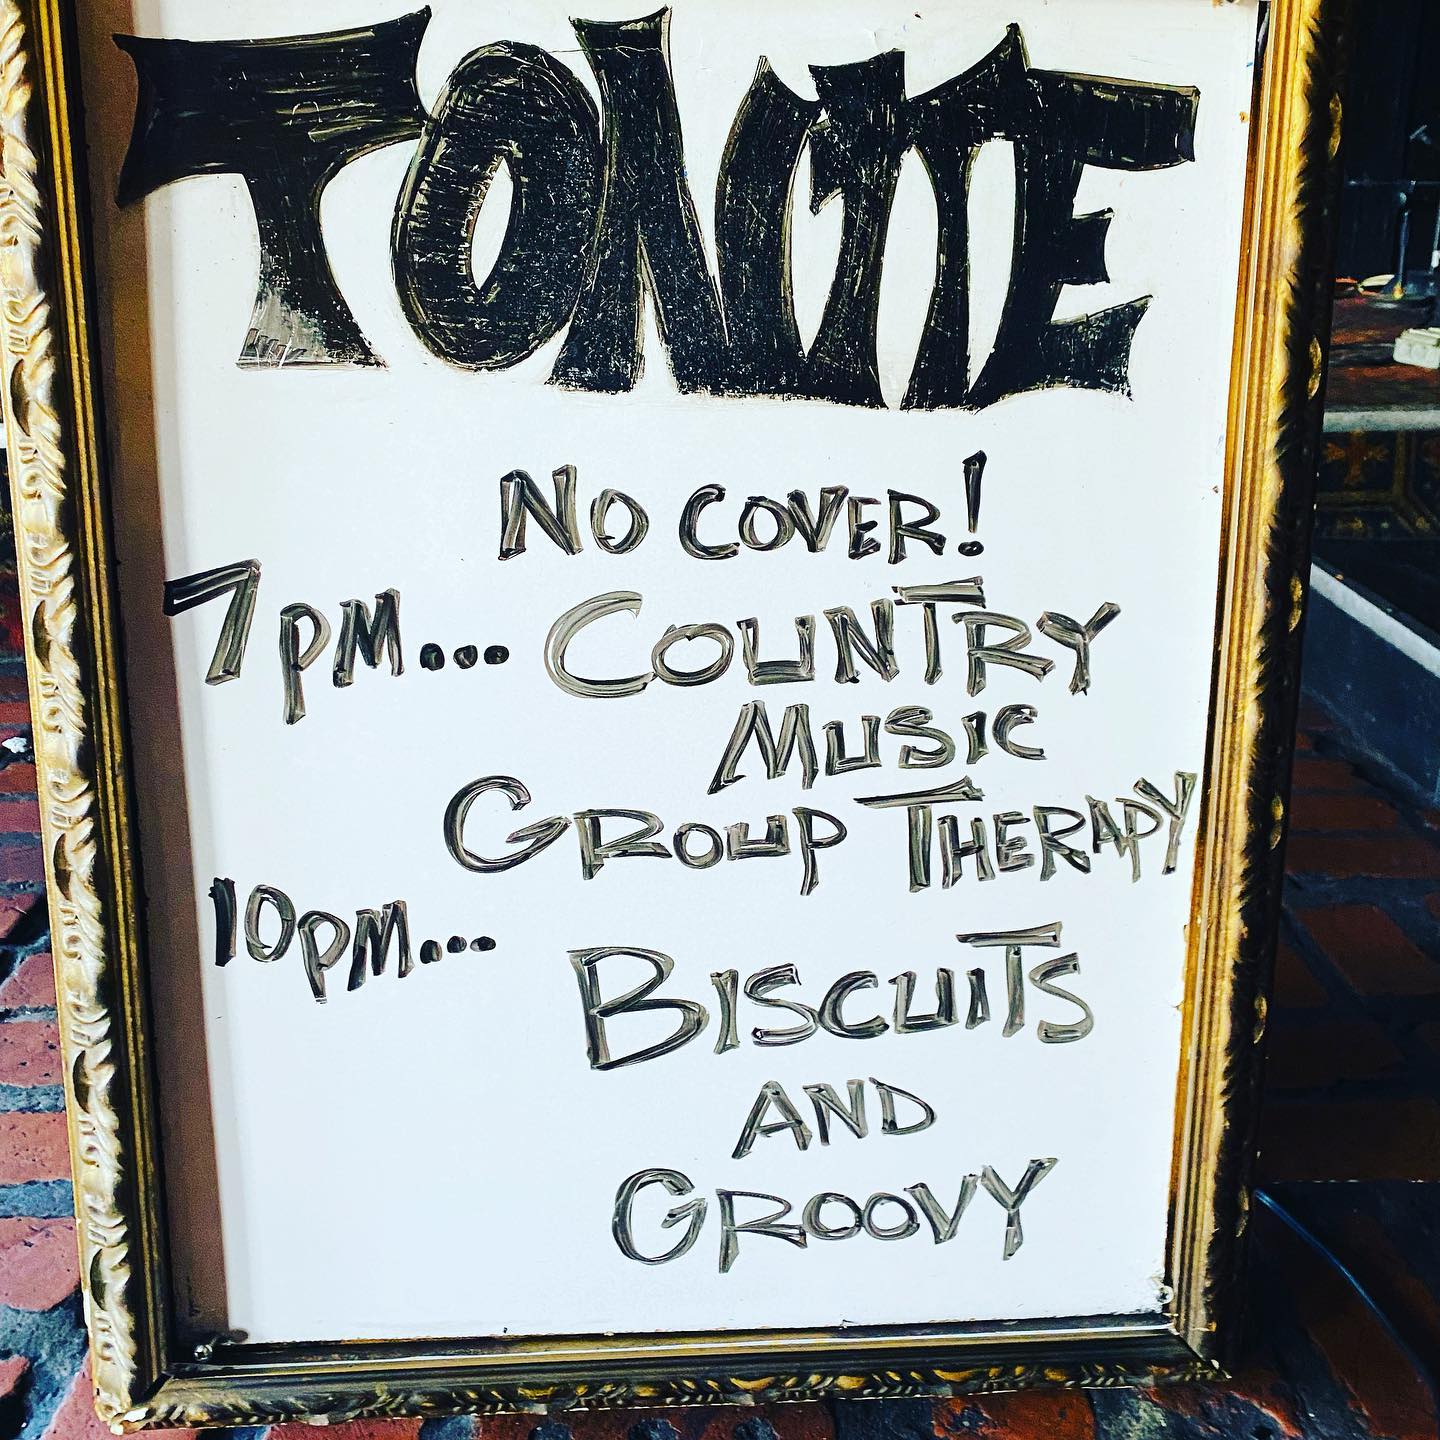 TONITE
NO COVER!
7PM... COUNTRY
MUSIC
GROUP THERAPY
10PM...
BISCUITS
AND
GROOVY